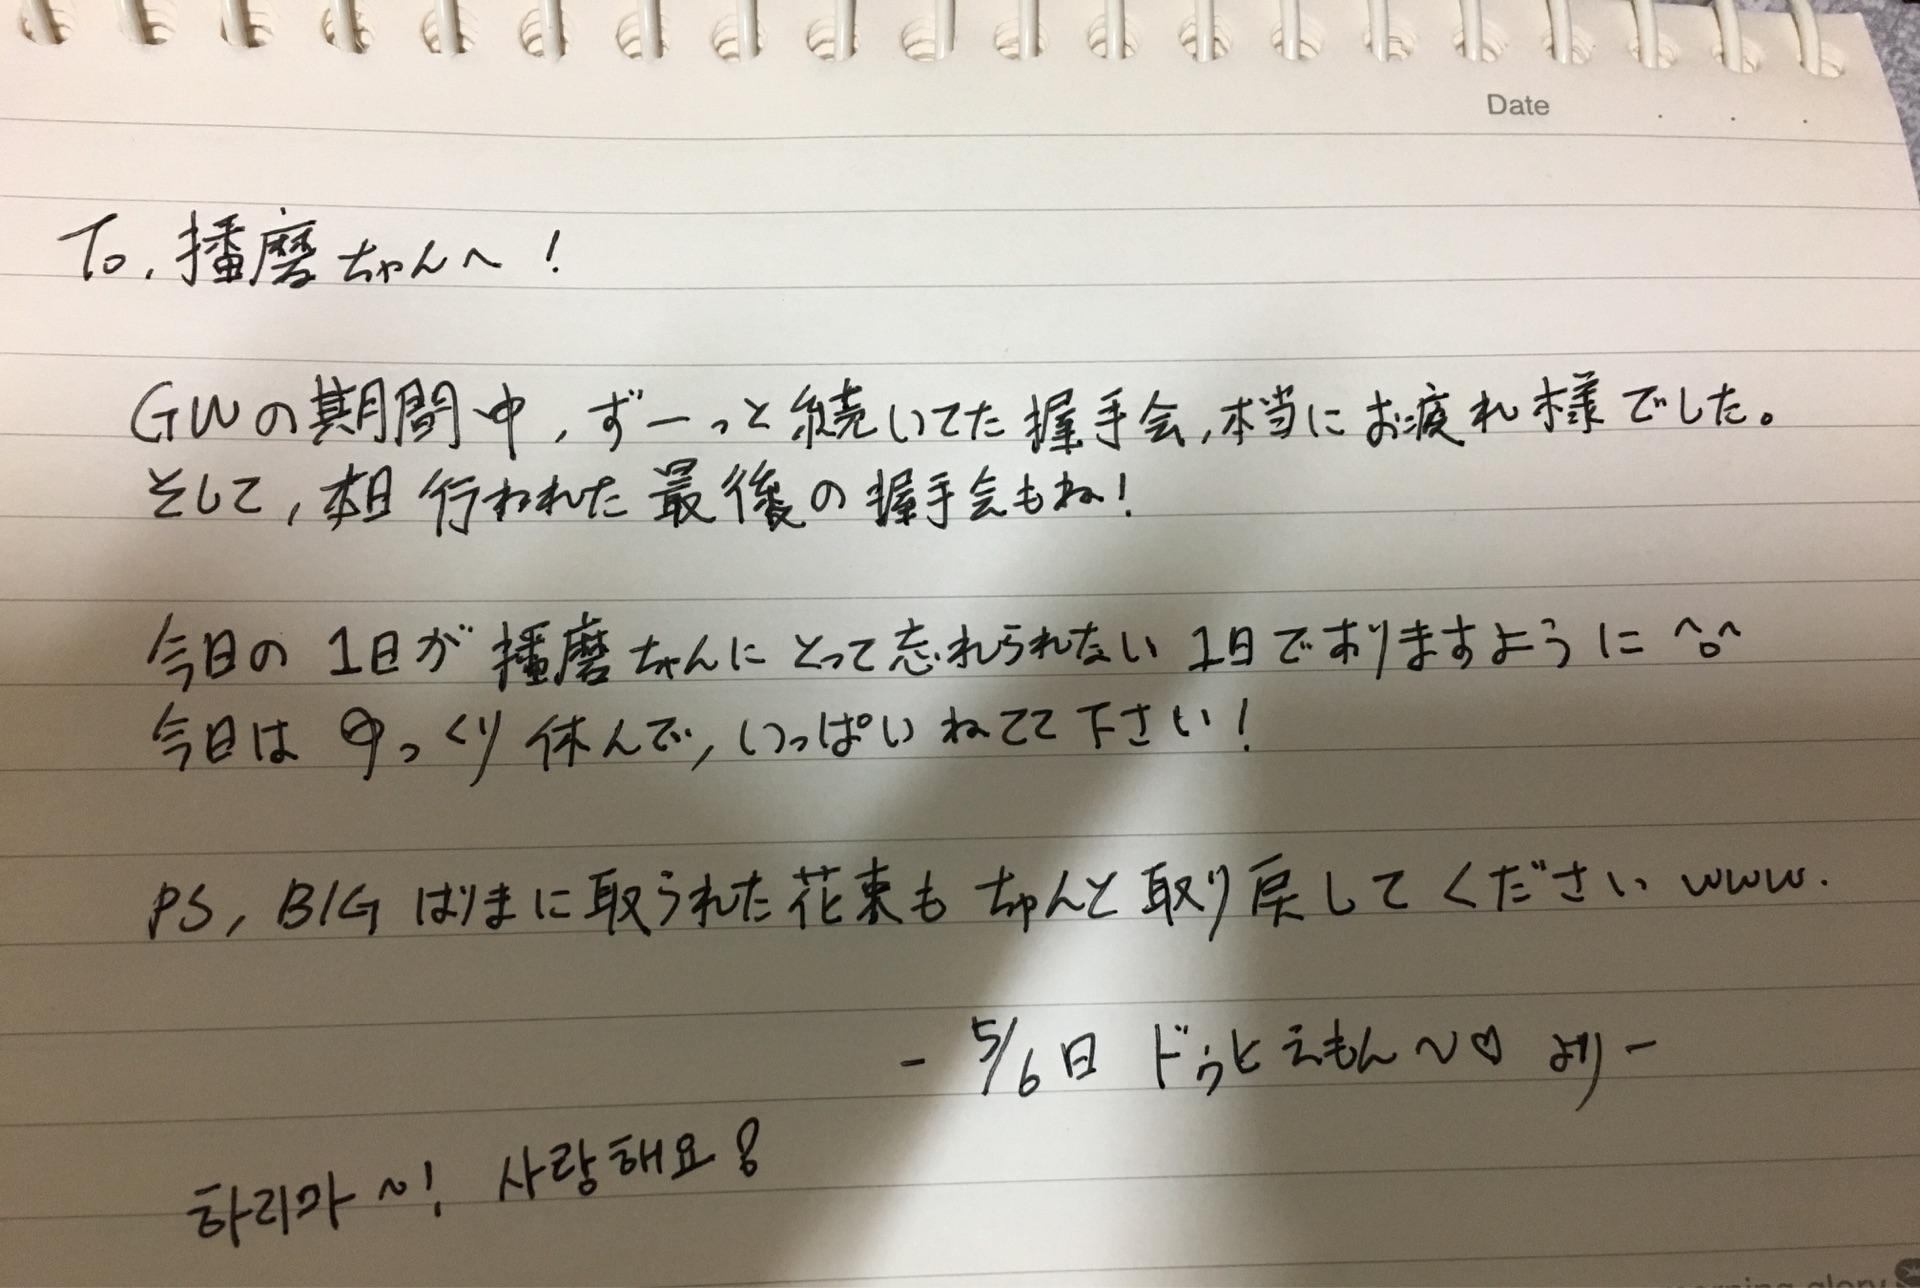 Date . . .
To. 播磨ちゃんへ！
GWの期間中, ずーっと続いてた握手会, 本当にお疲れ様でした。
そして, 本日行われた最後の握手会もね！
今日の1日が播磨ちゃんにとって忘れられない1日でおりますように ^o^
今日はゆっくり休んで, いっぱいねてて下さい！
PS, BIGはりまに取られた花束もちゃんと取り戻してください www.
- 5/6日 ドゥとえもん〜♡ より -
하리마~! 사랑해요
morning glory